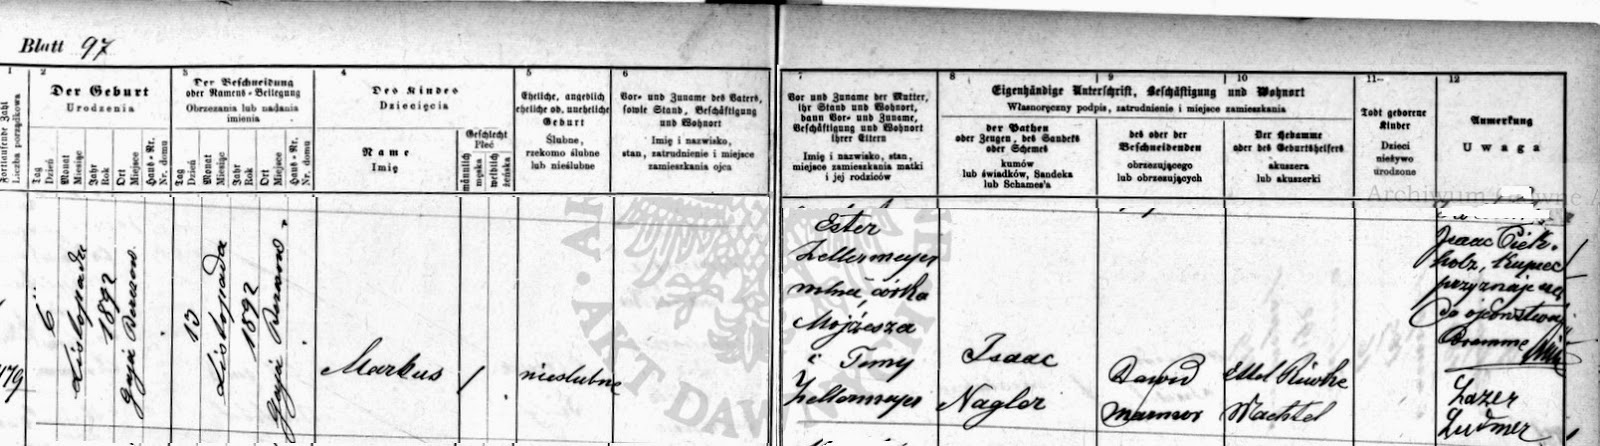 Blatt 97
1
Fortlaufende Zahl
Liczba porządkowa
2
Der Geburt
Urodzenia
Tag
Dzień
Monat
Miesiąc
Jahr
Rok
Ort
Miejsce
Haus-Nr.
Nr. domu
3
Der Beschneidung
oder Namens-Beilegung
Obrzezania lub nadania
imienia
Tag
Dzień
Monat
Miesiąc
Jahr
Rok
Ort
Miejsce
Haus-Nr.
Nr. domu
4
Des Kindes
Dziecięcia
Name
Imię
Geschlecht
Płeć
männlich
męska
weiblich
żeńska
5
Eheliche, angeblich
eheliche od. uneheliche
Geburt
Ślubne,
rzekomo ślubne
lub nieślubne
6
Vor- und Zuname des Vaters,
sowie Stand, Beschäftigung
und Wohnort
Imię i nazwisko,
stan, zatrudnienie i miejsce
zamieszkania ojca
7
Vor und Zuname der Mutter,
ihr Stand und Wohnort,
dann Vor- und Zuname,
Beschäftigung und Wohnort
ihrer Eltern
Imię i nazwisko, stan,
miejsce zamieszkania matki
i jej rodziców
8
9
10
Eigenhändige Unterschrift, Beschäftigung und Wohnort
Własnoręczny podpis, zatrudnienie i miejsce zamieszkania
der Pathen
oder Zeugen, des Sandeks
oder Schemes
kumów
lub świadków, Sandeka
lub Schames'a
des oder der
Beschneidenden
obrzezującego
lub obrzezujących
Der Hebamme
oder des Geburtshelfers
akuszera
lub akuszerki
11
Todt geborne
Kinder
Dzieci
nieżywo
urodzone
12
Anmerkung
Uwaga
179
6
Listopada
1892
13
Listopada
1892
Markus
nieslubne
Ester
Zellermeyer
córka
Mojżesza
i Temy
Zellermeyer
Isaac
Nagler
Dawid
Ettel Riwke
Wachtel
Isaac Piek-
holz, kupiec
przyznaje się
do ojcowstwa
Lazer
Ludmer